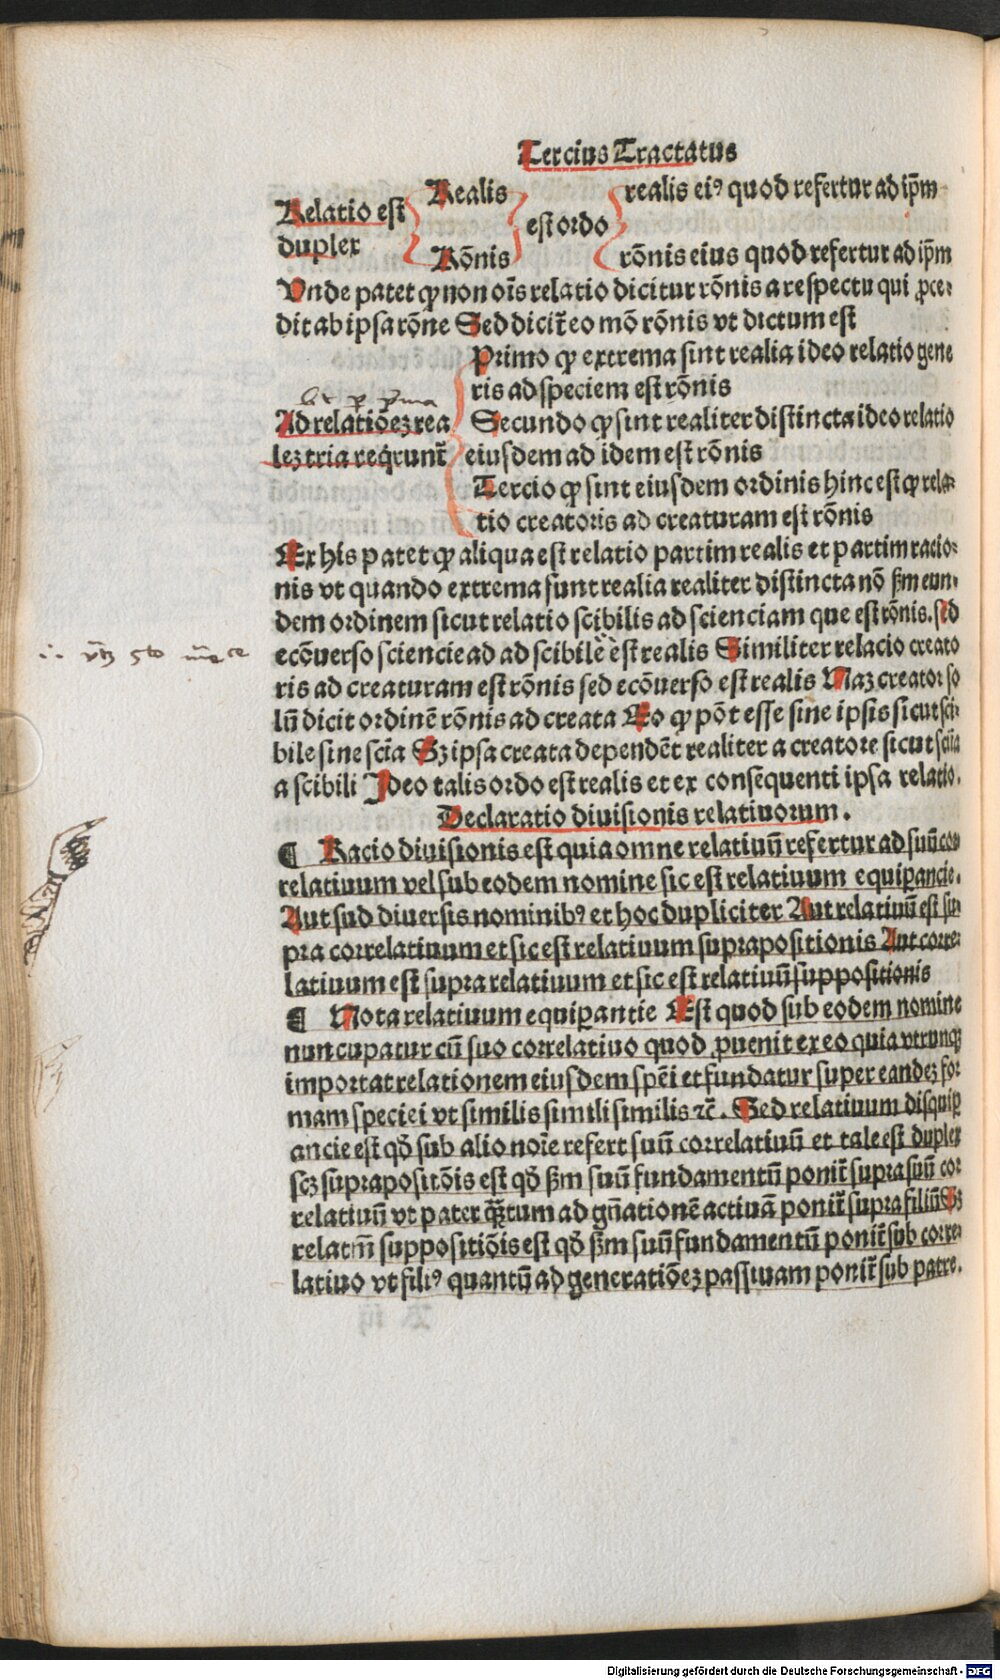 Tercius Tractatus
Relatio est
duplex
Realis
Rōnis
est ordo
realis eiꝰ quod refertur ad ip̄m
rōnis eius quod refertur ad ip̄m
Vnde patet ꝙ non oīs relatio dicitur rōnis a respectu qui ꝓce⸗
dit ab ipsa rōne Sed dicit̄ eo mō rōnis vt dictum est
Ad relatiōeꝫ rea
leꝫ tria reqrunt̄
Primo ꝙ extrema sint realia ideo relatio gene
ris ad speciem est rōnis
Secundo ꝙ sint realiter distincta ideo relatio
eiusdem ad idem est rōnis
Tercio ꝙ sint eiusdem ordinis hinc est ꝙ rela⸗
tio creatoris ad creaturam est rōnis
Ex his patet ꝙ aliqua est relatio partim realis et partim racio⸗
nis vt quando extrema sunt realia realiter distincta nō ẜm eun⸗
dem ordinem sicut relatio scibilis ad scienciam que est rōnis. sed
ecōuerso sciencie ad ad scibilē est realis Similiter relacio creato
ris ad creaturam est rōnis sed ecōuerso est realis Naꝫ creator so
lū dicit ordinē rōnis ad creata Eo ꝙ pōt esse sine ipsis sicut sci⸗
bile sine scīa Sꝫ ipsa creata dependēt realiter a creatore sicut scīa
a scibili Ideo talis ordo est realis et ex consequenti ipsa relatio.
Declaratio diuisionis relatiuorum.
¶ Racio diuisionis est quia omne relatiuū refertur ad suū cor
relatiuum vel sub eodem nomine sic est relatiuum equiꝑancie.
Aut sud diuersis nominibꝰ et hoc dupliciter Aut relatiuū est su
pra correlatiuum et sic est relatiuum suprapositionis Aut corre⸗
latiuum est supra relatiuum et sic est relatiuū suppositionis
¶ Nota relatiuum equiꝑantie Est quod sub eodem nomine
nuncupatur cū suo correlatiuo quod ꝓuenit ex eo quia vtrunqꝫ
importat relationem eiusdem spēi et fundatur super eandeꝫ for
mam speciei vt similis simili similis ⁊c̄. Sed relatiuum disquiꝑ
ancie est qd̄ sub alio noīe refert suū correlatiuū et tale est duplex
scꝫ suprapositōis est qd̄ ẜm suū fundamentū ponit̄ supra suū cor
relatiuū vt pater q̄ꝫtum ad gn̄ationē actiuā ponit̄ supra filiū Sꝫ
relatm̄ suppositiōis est qd̄ ẜm suū fundamentū ponit̄ sub corre⸗
latiuo vt filiꝰ quantū ad generatiōeꝫ passiuam ponit̄ sub patre.
Digitalisierung gefördert durch die Deutsche Forschungsgemeinschaft - DFG